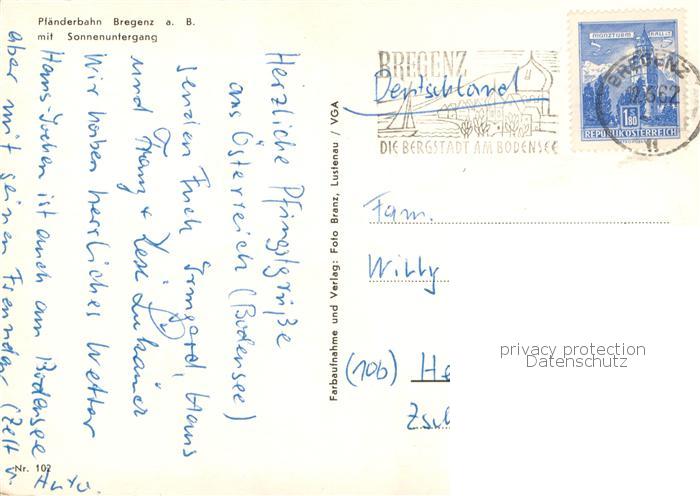 Pfänderbahn Bregenz a. B.
mit Sonnenuntergang
Herzliche Pfingstgrüße
aus Österreich (Bodensee)
senden Euch Irmgard, Hans
und Franz + Resi
Wir haben herrliches Wetter
Hans-Jochen ist auch am Bodensee
aber mit seinen Freunden (Zelt u.
Auto.
Nr. 102
Farbaufnahme und Verlag: Foto Branz, Lustenau / VGA
BREGENZ
DIE BERGSTADT AM BODENSEE
Deutschland
MÜNZTURM HALL I.T.
1.80
REPUBLIK ÖSTERREICH
BREGENZ
Fam.
Willy
(10b) He
Zsch
privacy protection
Datenschutz